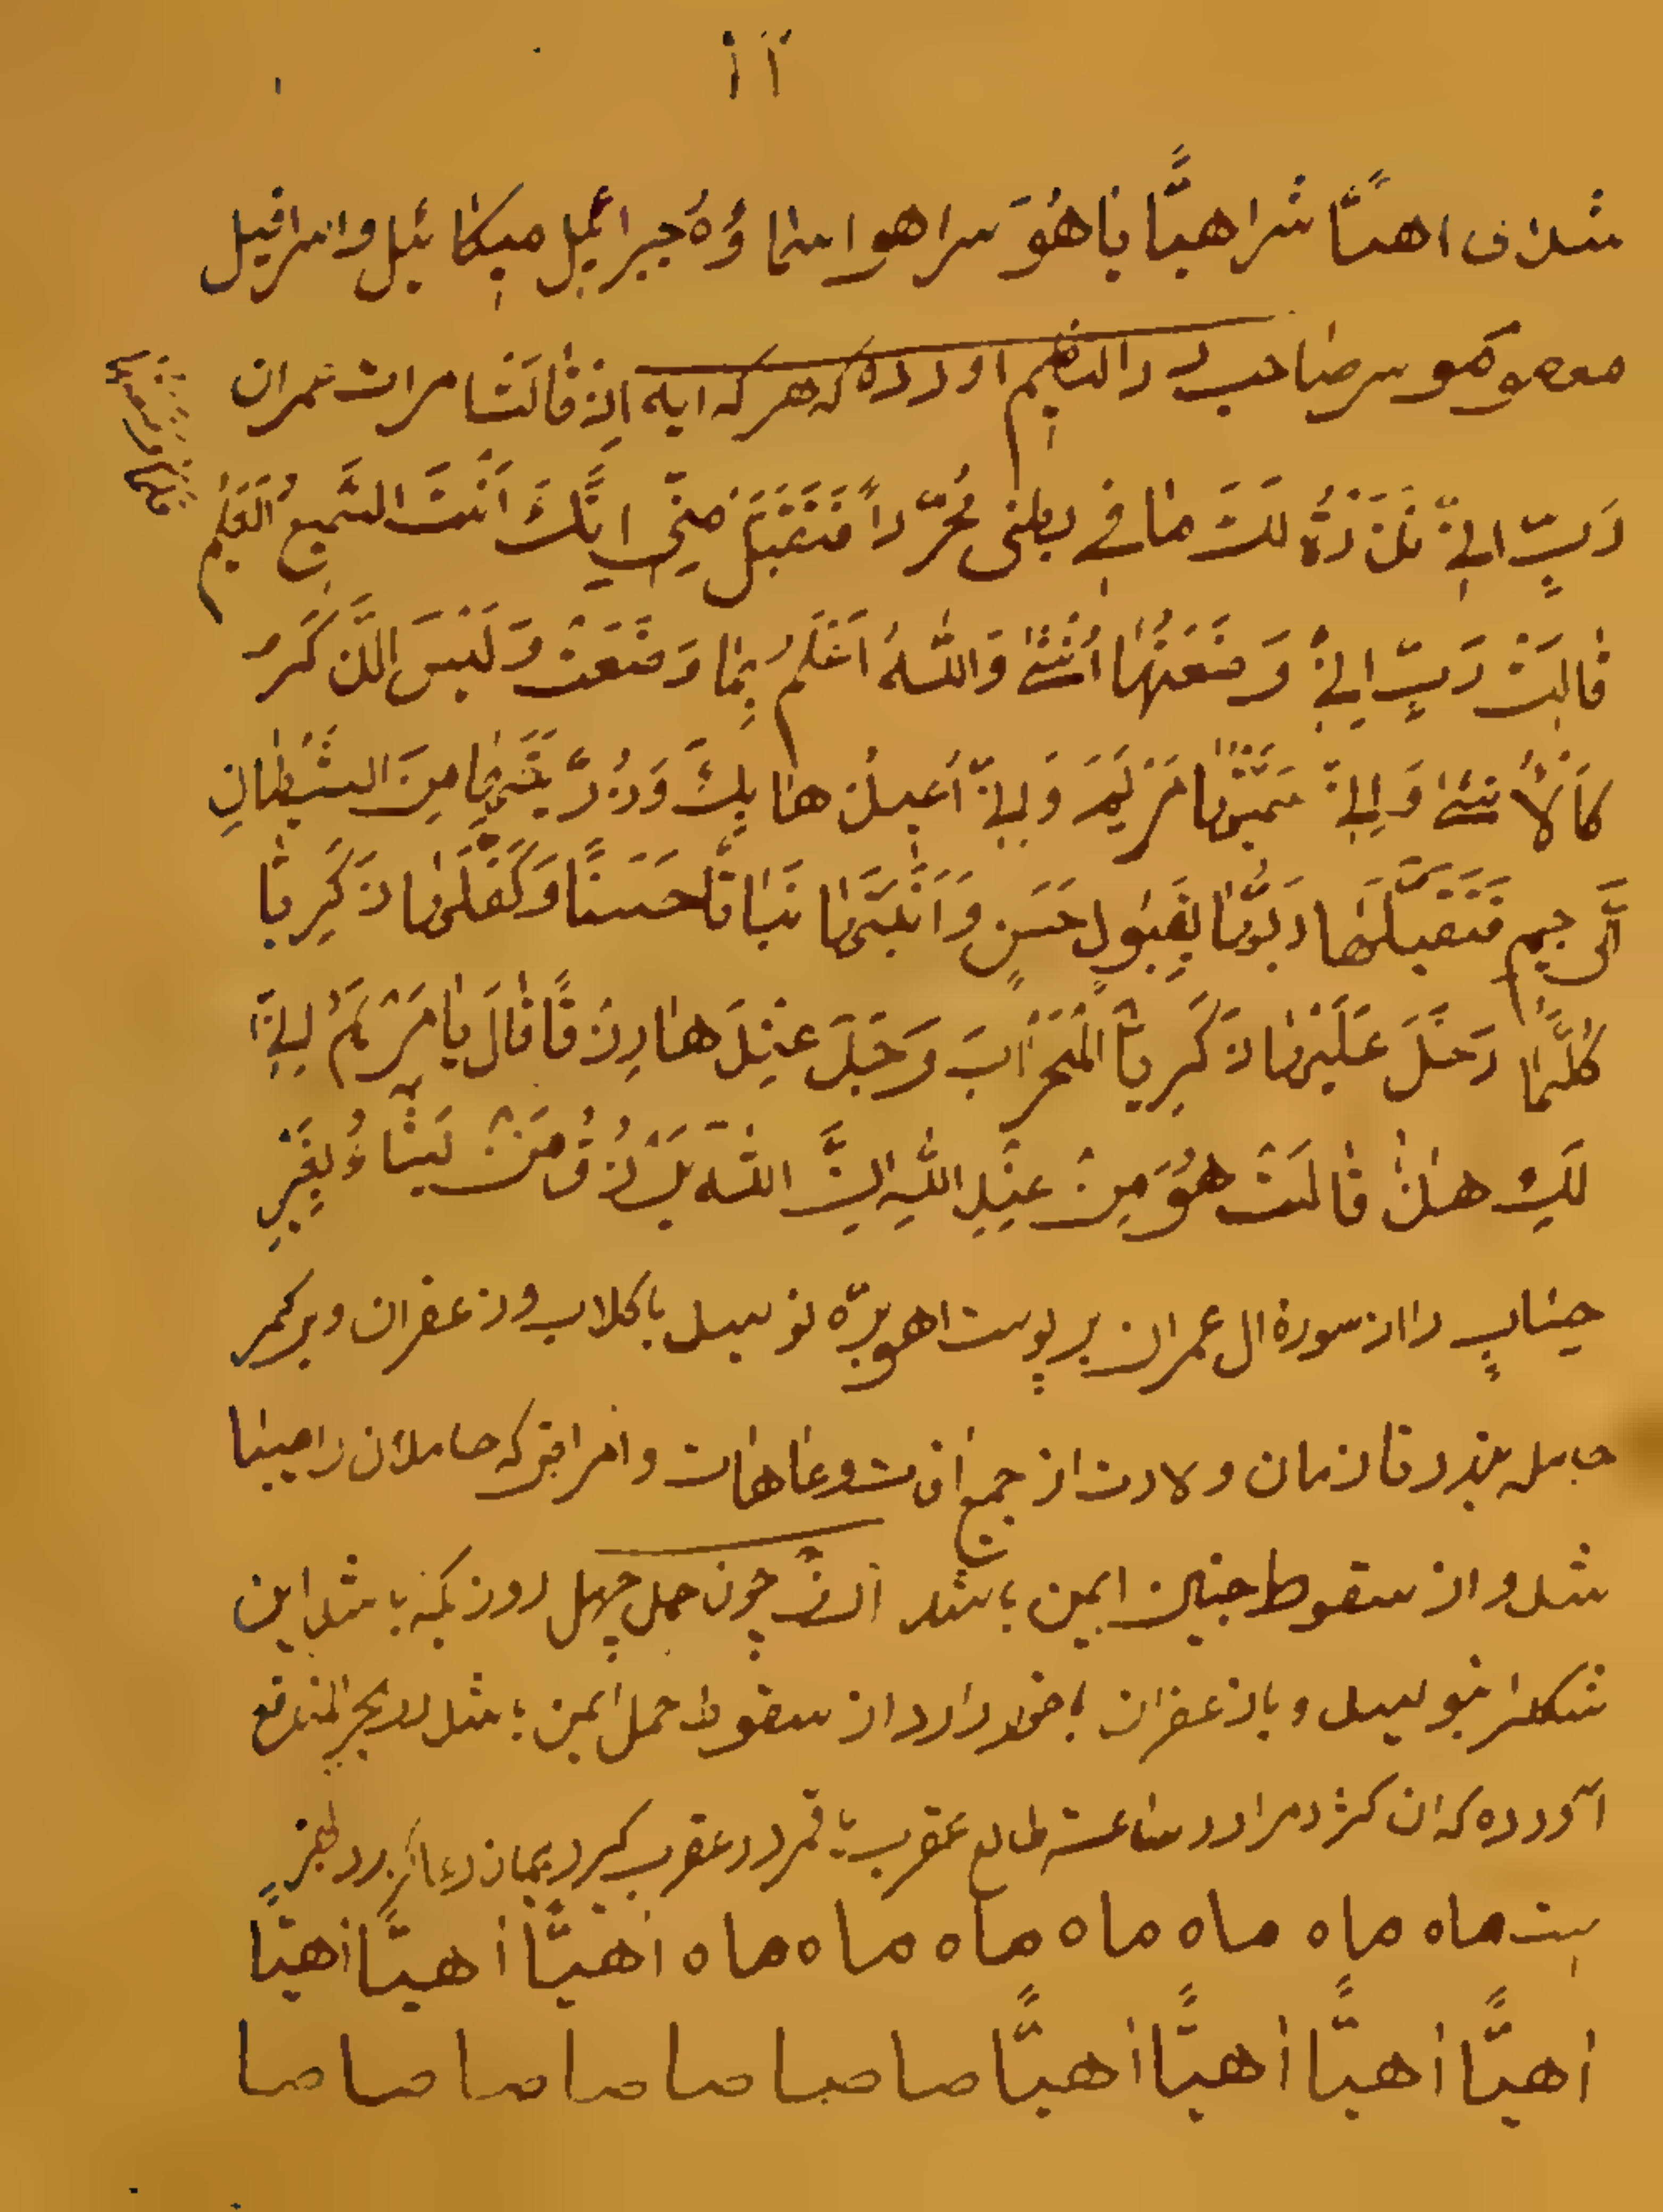 شداف اهیاً شراهیاً یاهو سراهوا سما وه جبرائیل میکائیل واسرافیل
صاحب در النظیم اورده که هر که ایه اِذ قالت امرات عمران
رَبِّ اِنّی نَذَرْتُ لَکَ ما فی بطنی مُحَرَّراً فَتَقَبَّلْ مِنّی اِنَّکَ اَنْتَ السَّمیعُ العَلیم
قالَتْ رَبِّ اِنّی وَضَعْتُها اُنْثی وَاللّهُ اَعْلَمُ بِما وَضَعَتْ وَلَیْسَ الذَّکَرُ
کَالْاُنْثی وَاِنّی سَمَّیْتُها مَرْیَمَ وَاِنّی اُعیذُها بِکَ وَذُرِّیَّتَها مِنَ الشَّیْطانِ
الرَّجیم فَتَقَبَّلَها رَبُّها بِقَبُولٍ حَسَنٍ وَاَنْبَتَها نَباتاً حَسَناً وَکَفَّلَها زَکَرِیّا
کُلَّما دَخَلَ عَلَیْها زَکَرِیَّا الْمِحْرابَ وَجَدَ عِنْدَها رِزْقاً قالَ یا مَرْیَمُ اَنّی
لَکِ هذا قالَتْ هُوَ مِنْ عِنْدِ اللّهِ اِنَّ اللّهَ یَرْزُقُ مَنْ یَشاءُ بِغَیْرِ
حِسابٍ را از سورة ال عمران بر پوست اهو بره نویسد باکلاب وزعفران وبرکمر
حامله بندد تا زمان ولادت از جمیع افت وعاهات وامراض که حاملان را میبا
شد واز سقوط جنین ایمن باشد چون حمل چهل روزکه باشد این
شکل بنویسد وبا زعفران با خود دارد از سقوط حمل ایمن باشد در بحر المنافع
آورده که ان کژدم را در ساعت طالع عقرب یا قمر در عقرب کیرد
ست ماه ماه ماه ماه ماه ماه ماه اهیّاً اهیّاً اهیّاً
اهیّاً اهیّاً اهیّاً اهیّاً صا صا صا صا صا صا صا